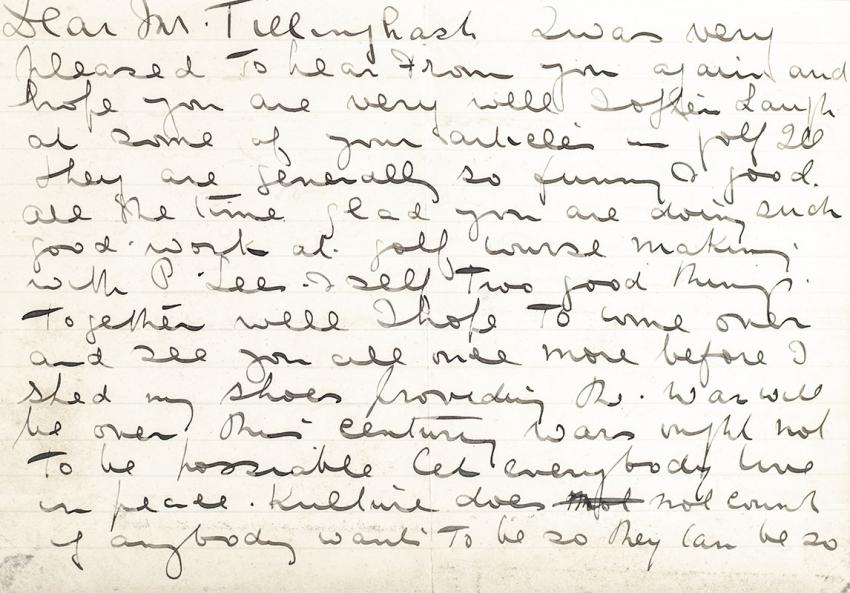 Dear Mr. Tillinghast I was very
pleased To hear From you again and
hope you are very well I often Laugh
at some of your articles in golf Ill
they are generally so funny & good.
all the time glad you are doing such
good work at golf course making.
with P. Lees. & self Two good things.
Together well I hope To come over
and see you all once more before I
shed my shoes providing the. War will
be over this century wars ought not
To be possiable let everybody live
in peace. Kulture does not count
if anybody wants To be so they can be so